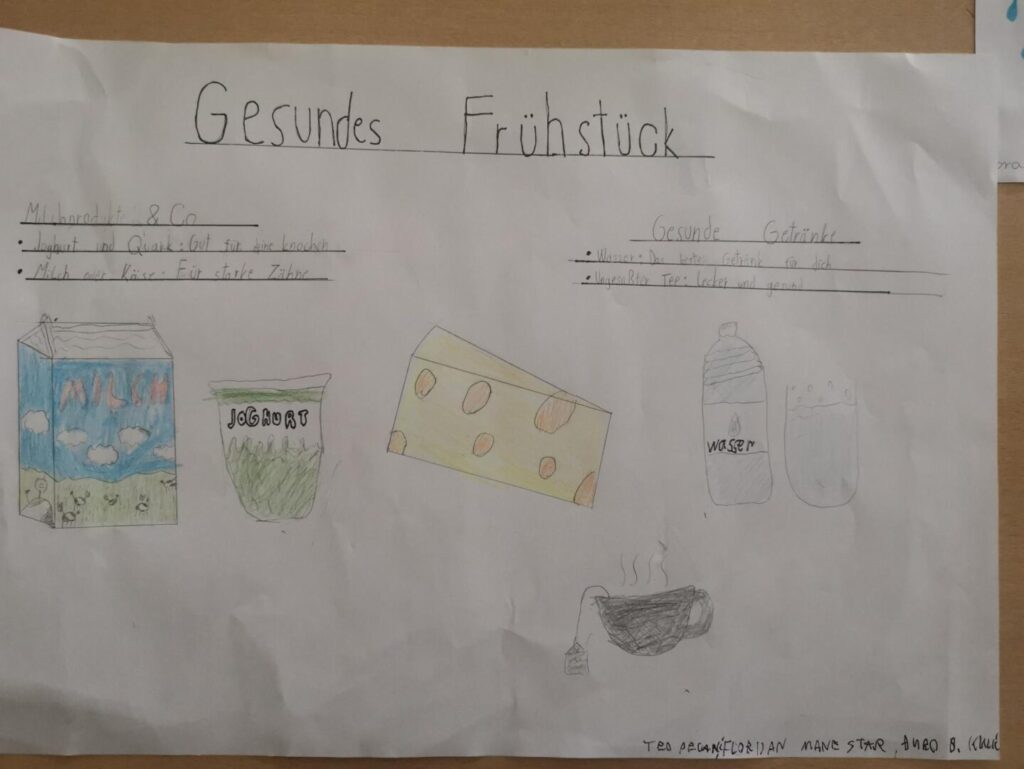 Gesundes Frühstück
Milchprodukte & Co
• Joghurt und Quark: Gut für deine knochen
• Milch oder Käse: Für starke Zähne
Gesunde Getränke
• Wasser: Das beste Getränk für dich
• Ungesüßter Tee: Lecker und gesund
MILCH
JOGHURT
wasser
TED FLORIAN MANE STAR,